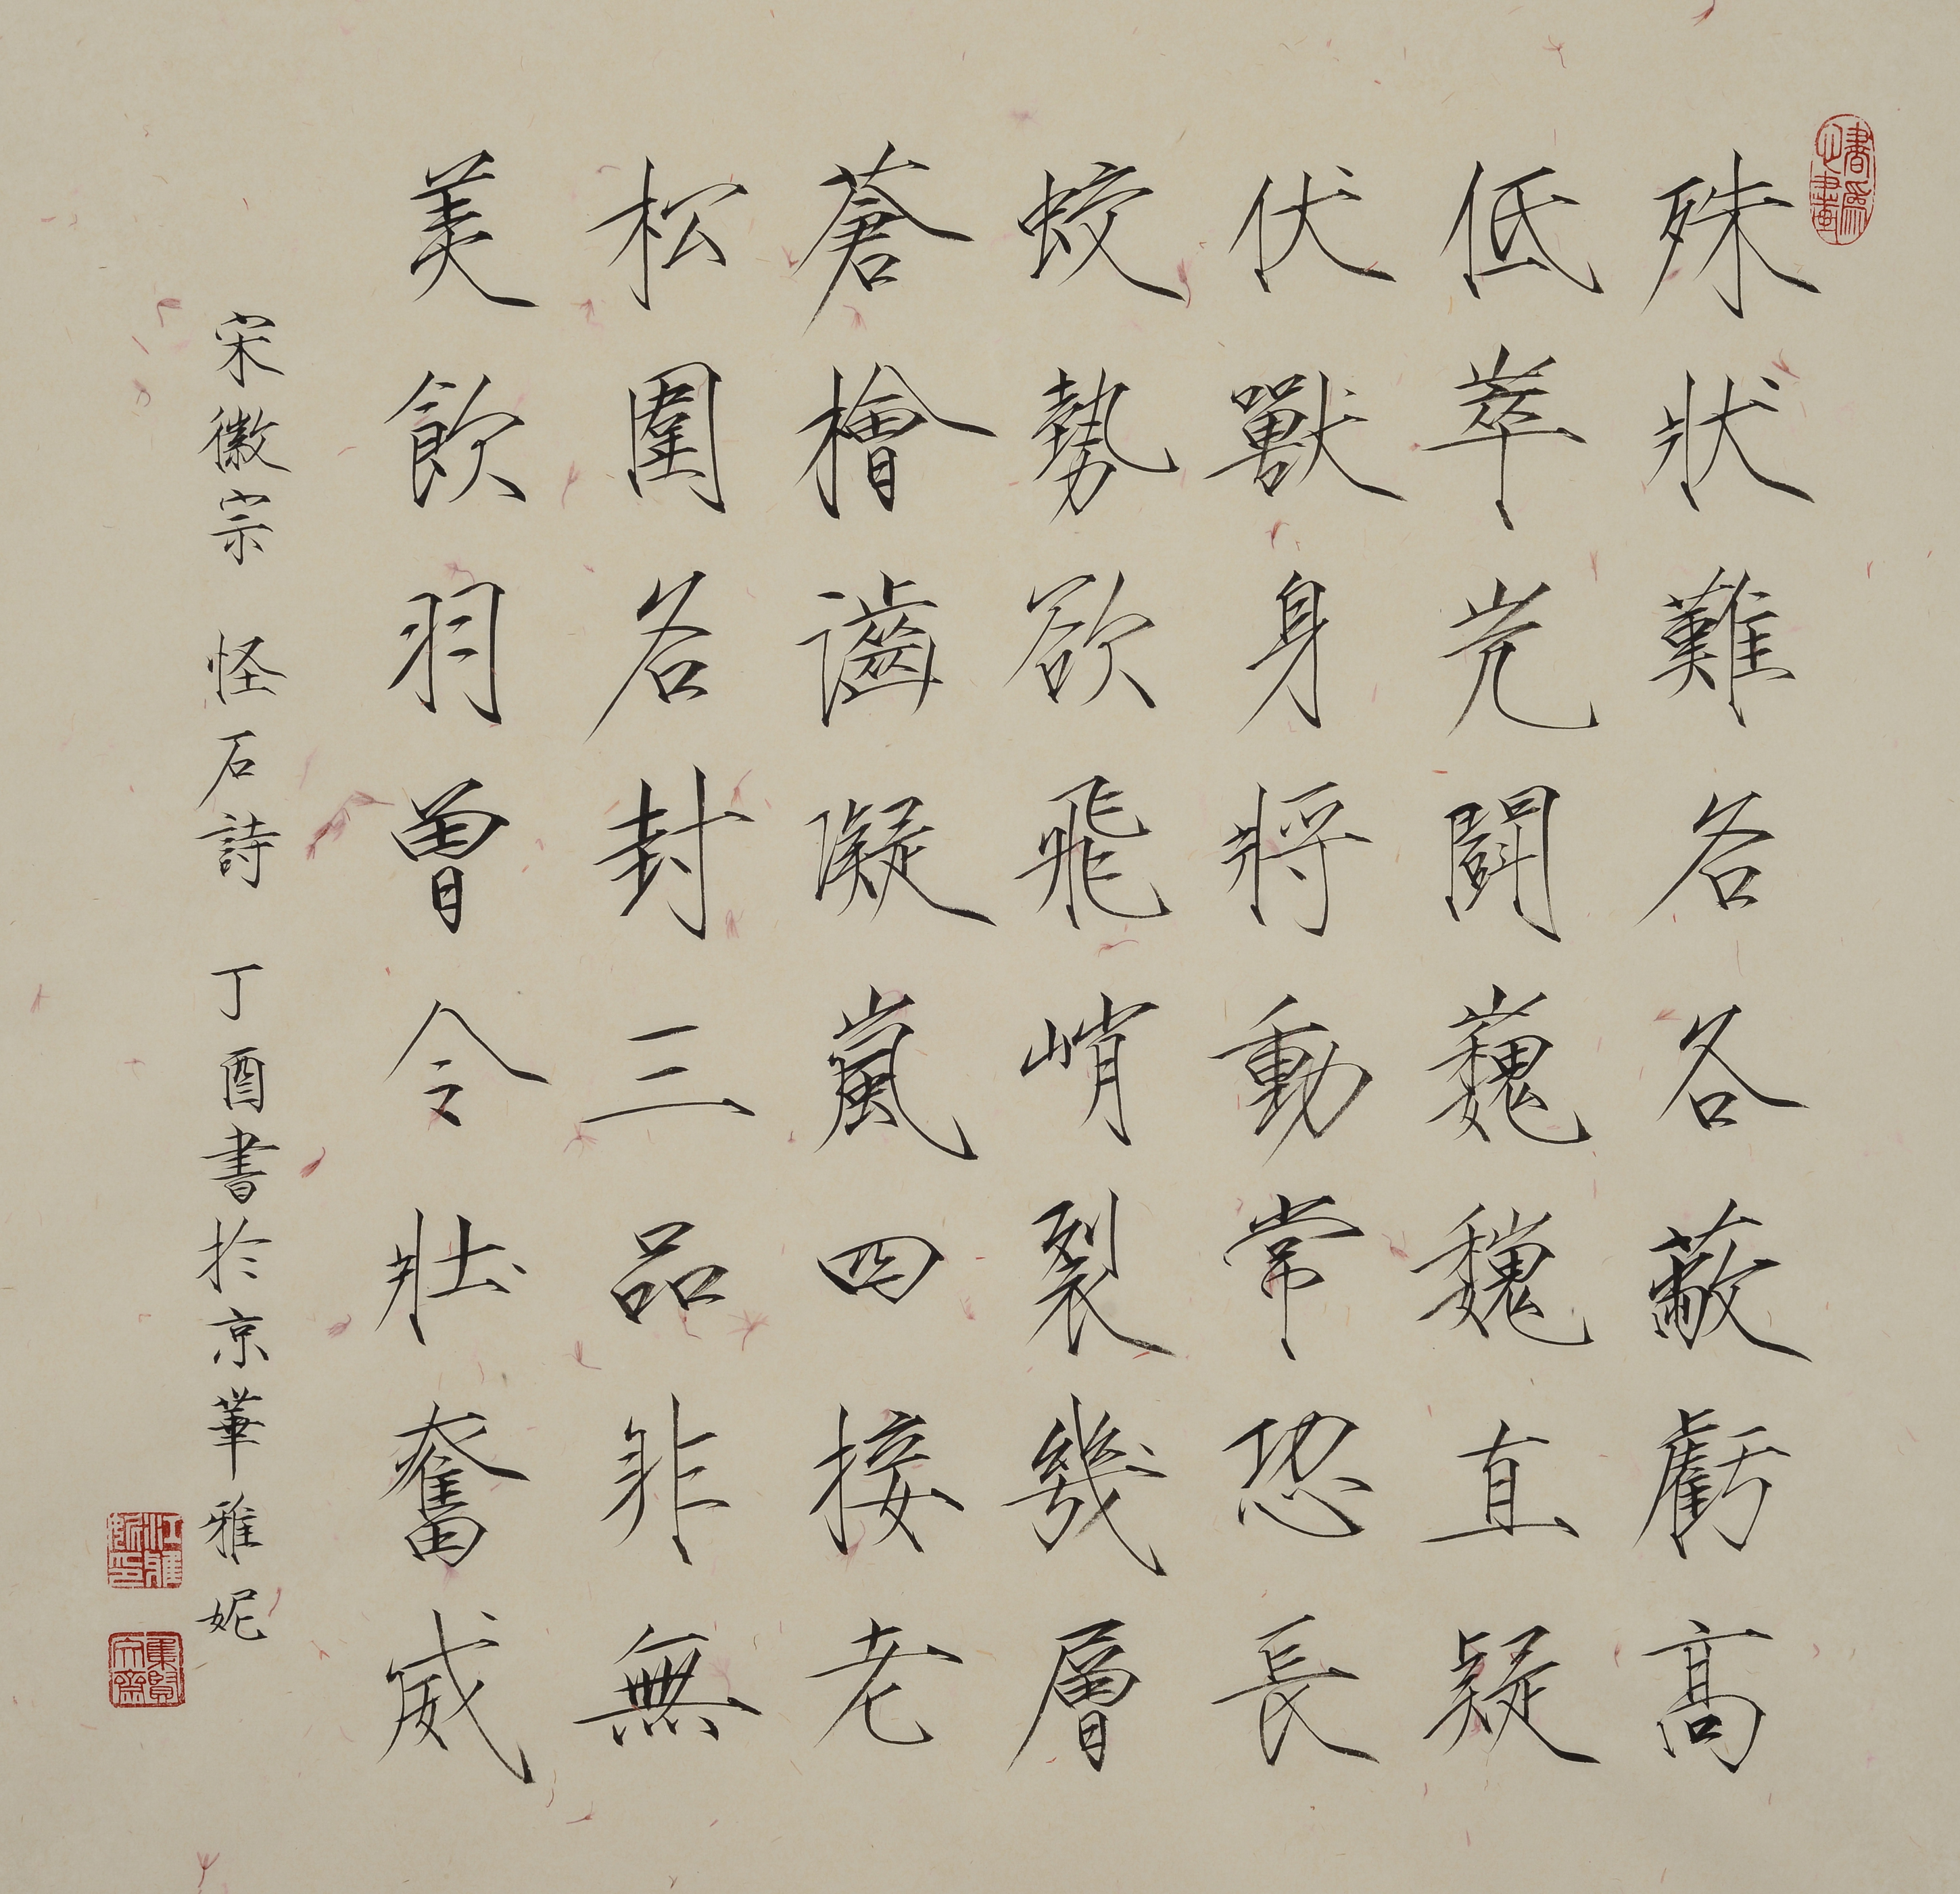 書為心畫
殊狀難各各蔽虧高
低萃岌鬪巍巍直疑
伏獸身將動常恐長
蛟勢欲飛峭裂幾層
蒼檜譺嵐四接老
松圍各封三品非無
美飲羽曾令壯奮威
宋徽宗 怪石詩 丁酉書於京華雅妮
集賢文齋